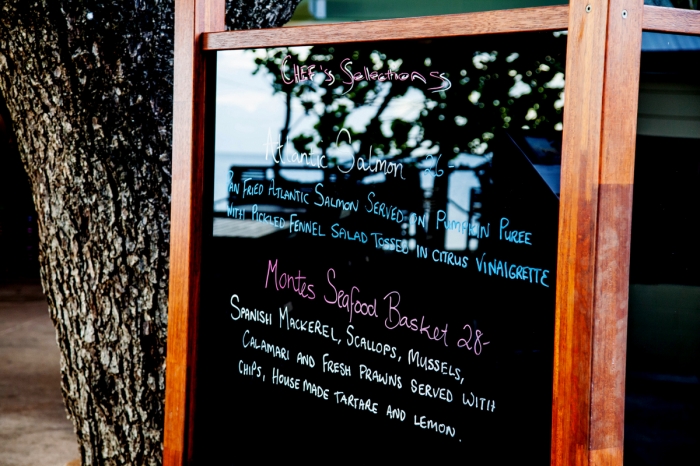 Chef's Selections
Atlantic Salmon 26-
Pan Fried Atlantic Salmon Served on Pumpkin Puree
with Pickled Fennel Salad Tossed in citrus Vinaigrette
Montes Seafood Basket 28-
Spanish Mackerel, Scallops, Mussels,
Calamari and Fresh Prawns served with
chips, housemade tartare and lemon.